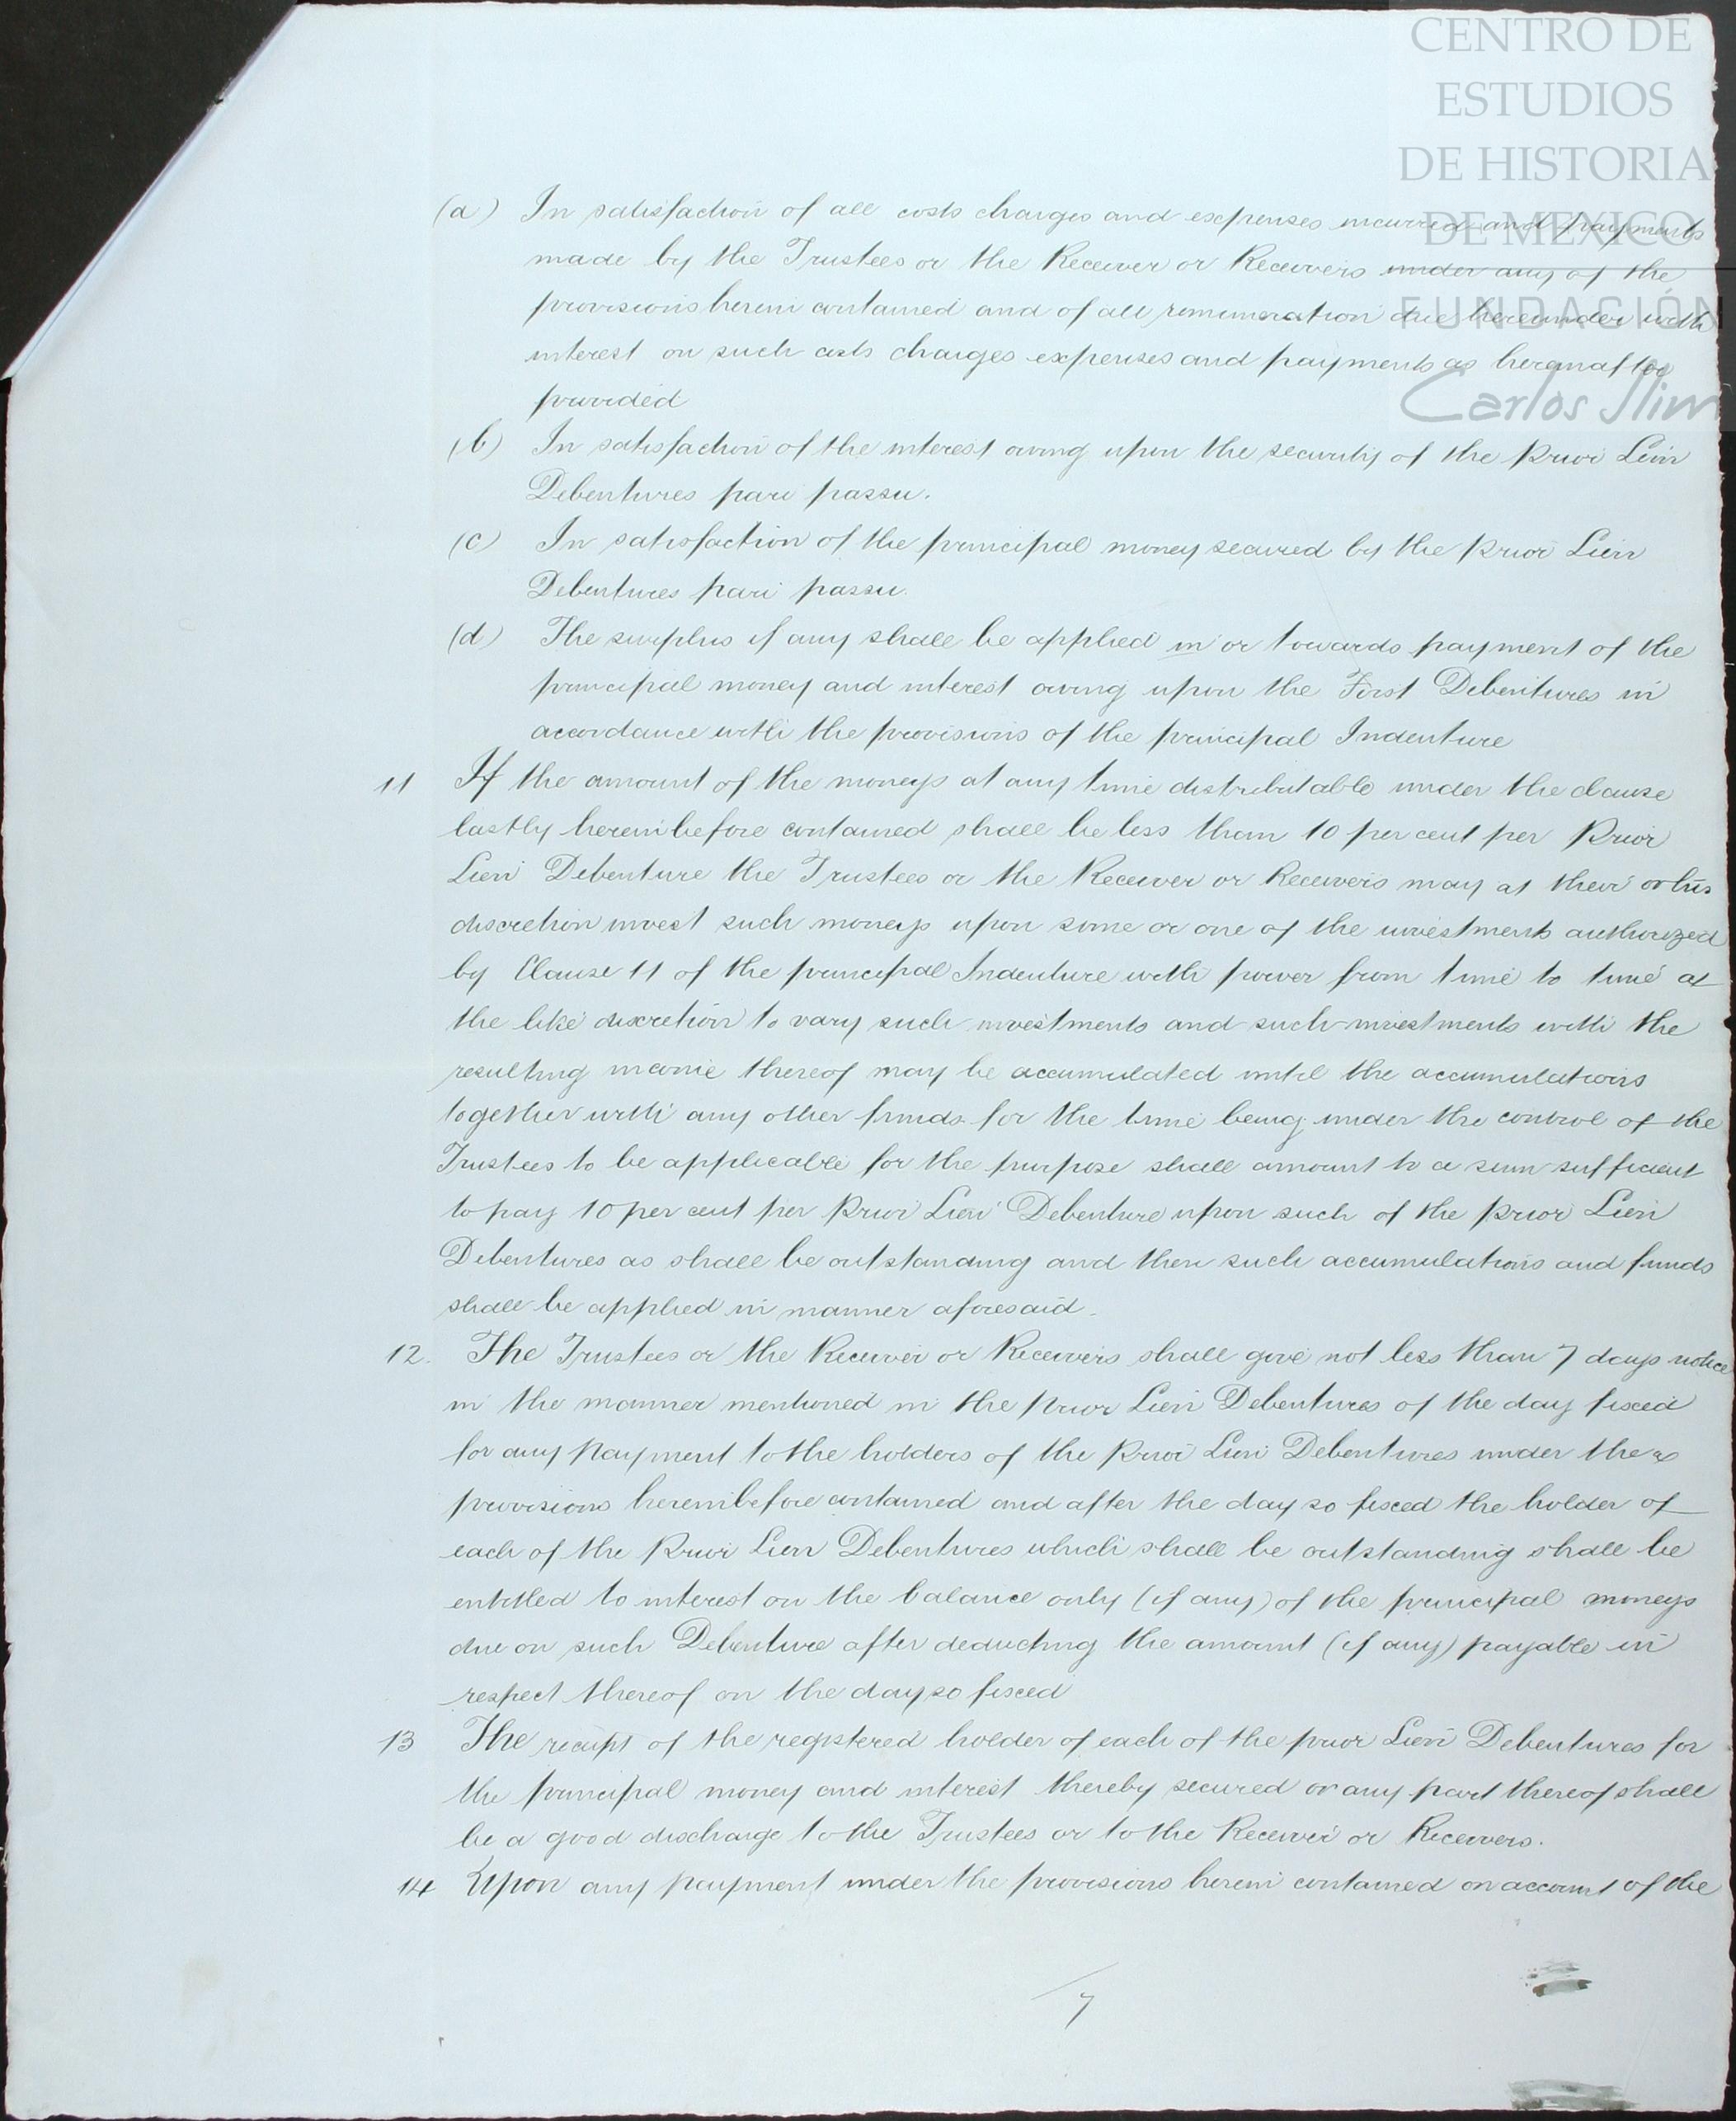 CENTRO DE
ESTUDIOS
DE HISTORIA
DE MEXICO
FUNDACIÓN
Carlos Slim
(a) In satisfaction of all costs charges and expenses incurred and payments
made by the Trustees or the Receiver or Receivers under any of the
provisions herein contained and of all remuneration due hereunder with
interest on such costs charges expenses and payments as hereinafter
provided
(b) In satisfaction of the interest owing upon the security of the Prior Lien
Debentures pari passu.
(c) In satisfaction of the principal money secured by the Prior Lien
Debentures pari passu.
(d) The surplus if any shall be applied in or towards payment of the
principal money and interest owing upon the First Debentures in
accordance with the provisions of the principal Indenture
11 If the amount of the moneys at any time distributable under the clause
lastly hereinbefore contained shall be less than 10 per cent per Prior
Lien Debenture the Trustees or the Receiver or Receivers may at their or his
discretion invest such moneys upon some or one of the investments authorized
by Clause 11 of the principal Indenture with power from time to time at
the like discretion to vary such investments and such investments with the
resulting income thereof may be accumulated until the accumulations
together with any other funds for the time being under the control of the
Trustees to be applicable for the purpose shall amount to a sum sufficient
to pay 10 per cent per Prior Lien Debenture upon such of the Prior Lien
Debentures as shall be outstanding and then such accumulations and funds
shall be applied in manner aforesaid.
12. The Trustees or the Receiver or Receivers shall give not less than 7 days notice
in the manner mentioned in the Prior Lien Debentures of the day fixed
for any payment to the holders of the Prior Lien Debentures under the
provisions hereinbefore contained and after the day so fixed the holder of
each of the Prior Lien Debentures which shall be outstanding shall be
entitled to interest on the balance only (if any) of the principal moneys
due on such Debenture after deducting the amount (if any) payable in
respect thereof on the day so fixed
13 The receipt of the registered holder of each of the prior Lien Debentures for
the principal money and interest thereby secured or any part thereof shall
be a good discharge to the Trustees or to the Receiver or Receivers.
14 Upon any payment under the provisions herein contained on account of the
7